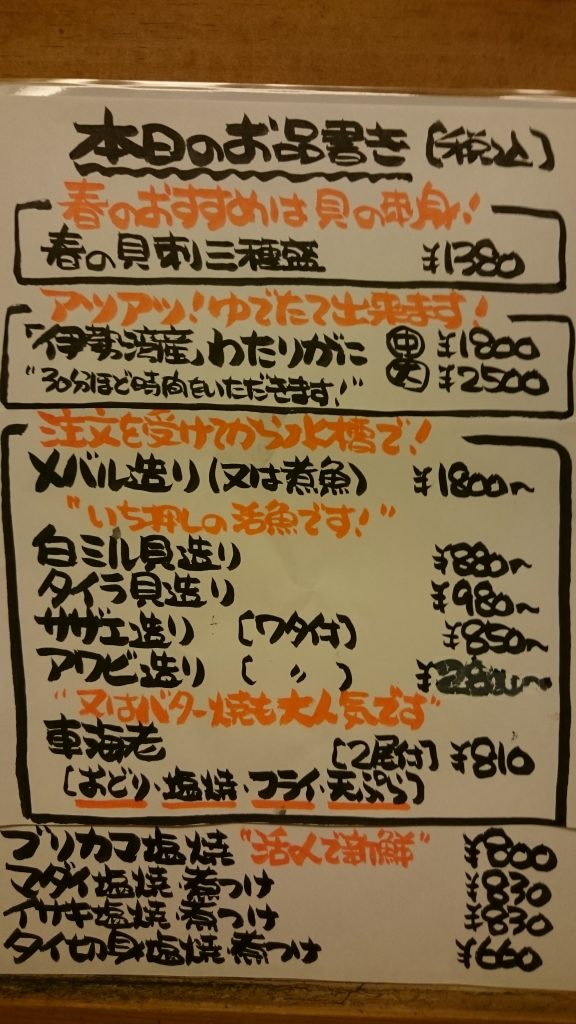 本日のお品書き〔税込〕
春のおすすめは貝の刺身!
春の貝刺三種盛 ¥1380
アツアツ!ゆでたて出来ます!
「伊勢湾産」わたりがに 中 ¥1800
大 ¥2500
"30分ほど時間をいただきます!"
注文を受けてから水槽で!
メバル造り(又は煮魚) ¥1800〜
"いち押しの活魚です!"
白ミル貝造り ¥880〜
タイラ貝造り ¥980〜
サザエ造り 〔ワタ付〕 ¥850〜
アワビ造り 〔 〃 〕
"又はバター焼も大人気です"
車海老 〔2尾付〕 ¥810
〔おどり・塩焼・フライ・天ぷら〕
ブリカマ塩焼 "活〆で新鮮" ¥800
マダイ塩焼・煮つけ ¥830
イサキ塩焼・煮つけ ¥830
タイ切身塩焼・煮つけ ¥690